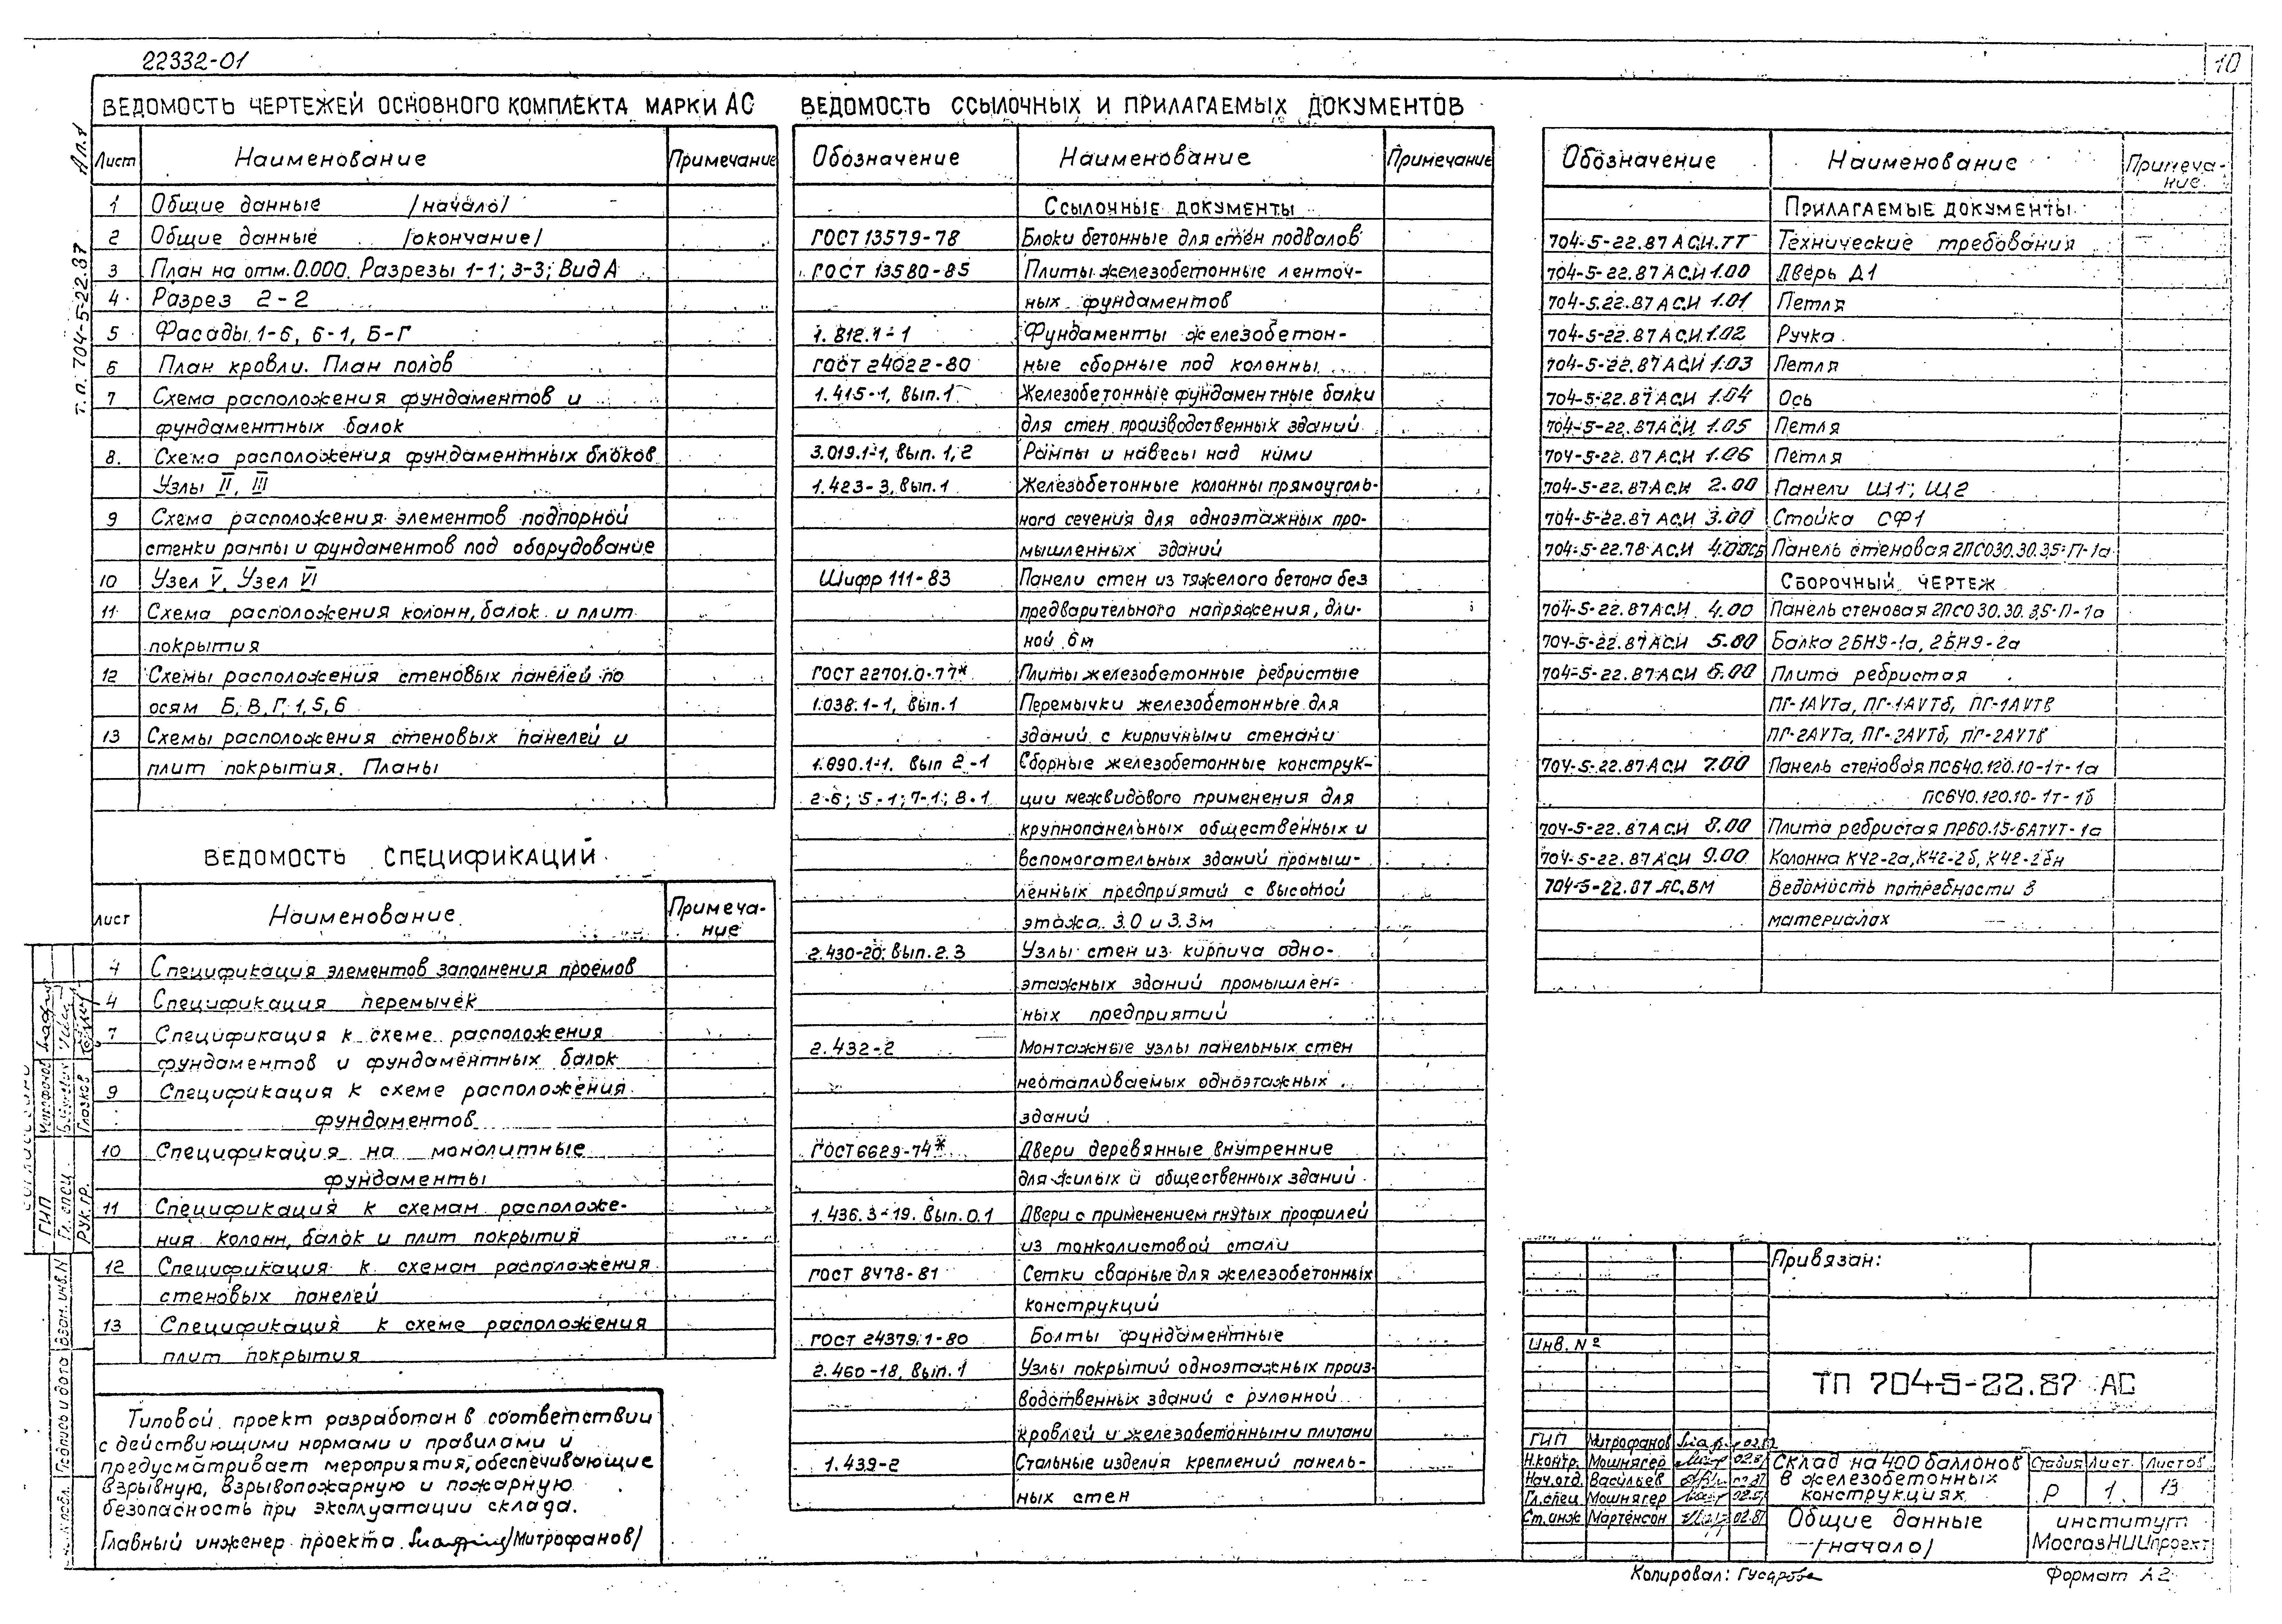 22332-01
10
Ал.1
т.п. 704-5-22.87
ВЕДОМОСТЬ ЧЕРТЕЖЕЙ ОСНОВНОГО КОМПЛЕКТА МАРКИ АС
Лист Наименование Примечание
1 Общие данные /начало/
2 Общие данные /окончание/
3 План на отм. 0.000. Разрезы 1-1; 3-3; Вид А
4 Разрез 2-2
5 Фасады 1-6, 6-1, Б-Г
6 План кровли. План полов
7 Схема расположения фундаментов и
фундаментных балок
8. Схема расположения фундаментных блоков
Узлы II, III
9 Схема расположения элементов подпорной
стенки рампы и фундаментов под оборудование
10 Узел V, Узел VI
11 Схема расположения колонн, балок и плит
покрытия
12 Схемы расположения стеновых панелей по
осям Б, В, Г, 1, 5, 6
13 Схемы расположения стеновых панелей и
плит покрытия. Планы
ВЕДОМОСТЬ СПЕЦИФИКАЦИЙ
лист Наименование Примеча-
ние
4 Спецификация элементов заполнения проемов
4 Спецификация перемычек
7 Спецификация к схеме расположения
фундаментов и фундаментных балок
9 Спецификация к схеме расположения
фундаментов
10 Спецификация на монолитные
фундаменты
11 Спецификация к схемам расположе-
ния колонн, балок и плит покрытия
12 Спецификация к схемам расположения
стеновых панелей
13 Спецификация к схеме расположения
плит покрытия
Типовой проект разработан в соответствии
с действующими нормами и правилами и
предусматривает мероприятия, обеспечивающие
взрывную, взрывопожарную и пожарную
безопасность при эксплуатации склада.
Главный инженер проекта /Митрофанов/
ВЕДОМОСТЬ ССЫЛОЧНЫХ И ПРИЛАГАЕМЫХ ДОКУМЕНТОВ
Обозначение Наименование Примечание
ССЫЛОЧНЫЕ ДОКУМЕНТЫ
ГОСТ 13579-78 Блоки бетонные для стен подвалов
ГОСТ 13580-85 Плиты железобетонные ленточ-
ных фундаментов
1.812.1-1 Фундаменты железобетон-
ГОСТ 24022-80 ные сборные под колонны
1.415-1, вып.1 Железобетонные фундаментные балки
для стен производственных зданий
3.019.1-1, вып. 1, 2 Рампы и навесы над ними
1.423-3, вып.1 Железобетонные колонны прямоуголь-
ного сечения для одноэтажных про-
мышленных зданий
Шифр 111-83 Панели стен из тяжелого бетона без
предварительного напряжения, дли-
ной 6м
ГОСТ 22701.0-77* Плиты железобетонные ребристые
1.038.1-1, вып.1 Перемычки железобетонные для
зданий с кирпичными стенами
1.090.1-1. вып 2-1 Сборные железобетонные конструк-
2-6; 5-1; 7-1; 8-1 ции межвидового применения для
крупнопанельных общественных и
вспомогательных зданий промыш-
ленных предприятий с высотой
этажа 3.0 и 3.3м
2.430-20; вып. 2.3 Узлы стен из кирпича одно-
этажных зданий промышлен-
ных предприятий
2.432-2 Монтажные узлы панельных стен
неотапливаемых одноэтажных
зданий
ГОСТ 6629-74* Двери деревянные внутренние
для жилых и общественных зданий
1.436.3-19. вып. 0.1 Двери с применением гнутых профилей
из тонколистовой стали
ГОСТ 8478-81 Сетки сварные для железобетонных
конструкций
ГОСТ 24379.1-80 Болты фундаментные
2.460-18, вып.1 Узлы покрытий одноэтажных произ-
водственных зданий с рулонной
кровлей и железобетонными плитами
1.439-2 Стальные изделия креплений панель-
ных стен
Обозначение Наименование Примеча-
ние
ПРИЛАГАЕМЫЕ ДОКУМЕНТЫ
704-5-22.87 АС.И.ТТ Технические требования
704-5-22.87 АС.И 1.00 Дверь Д1
704-5.22.87 АС.И 1.01 Петля
704-5-22.87 АС.И.1.02 Ручка
704-5-22.87 АС.И 1.03 Петля
704-5-22.87 АС.И 1.04 Ось
704-5-22.87 АС.И 1.05 Петля
704-5-22.87 АС.И 1.06 Петля
704-5-22.87 АС.И 2.00 Панели Щ1; Щ2
704-5-22.87 АС.И 3.00 Стойка СФ1
704-5-22.78 АС.И 4.00СБ Панель стеновая 2ПС030.30.3,5-П-1а
СБОРОЧНЫЙ ЧЕРТЕЖ
704-5-22.87 АС.И 4.00 Панель стеновая 2ПС0 30.30.3,5-П-1а
704-5-22.87 АС.И 5.00 Балка 2БН9-1а, 2БН9-2а
704-5-22.87 АС.И 6.00 Плита ребристая
ПГ-1АVТа, ПГ-1АVТб, ПГ-1АVТв
ПГ-2АVТа, ПГ-2АVТб, ПГ-2АVТв
704-5-22.87 АС.И 7.00 Панель стеновая ПС640.120.10-1т-1а
ПС640.120.10-1т-1б
704-5-22.87 АС.И 8.00 Плита ребристая ПР60.15-6АТVТ-1а
704-5-22.87 АС.И 9.00 Колонна К42-2а, К42-2б, К42-2бн
704-5-22.87 АС.ВМ Ведомость потребности в
материалах
Привязан:
Инв. №
ТП 704-5-22.87 АС
ГИП Митрофанов 02.87
Н.контр. Мошнягер 02.87
Нач.отд. Васильев 02.87
Гл.спец Мошнягер 02.87
Ст.инж Мартенсон 02.87
Склад на 400 баллонов
в железобетонных
конструкциях
Стадия Лист Листов
Р 1 13
Общие данные
/начало/
институт
МосгазНИИпроект
Копировал: Гусарова
Формат А2
ГИП Митрофанов
Гл. спец.
Рук. гр. Глазков
Взам. инв. N
Подпись и дата